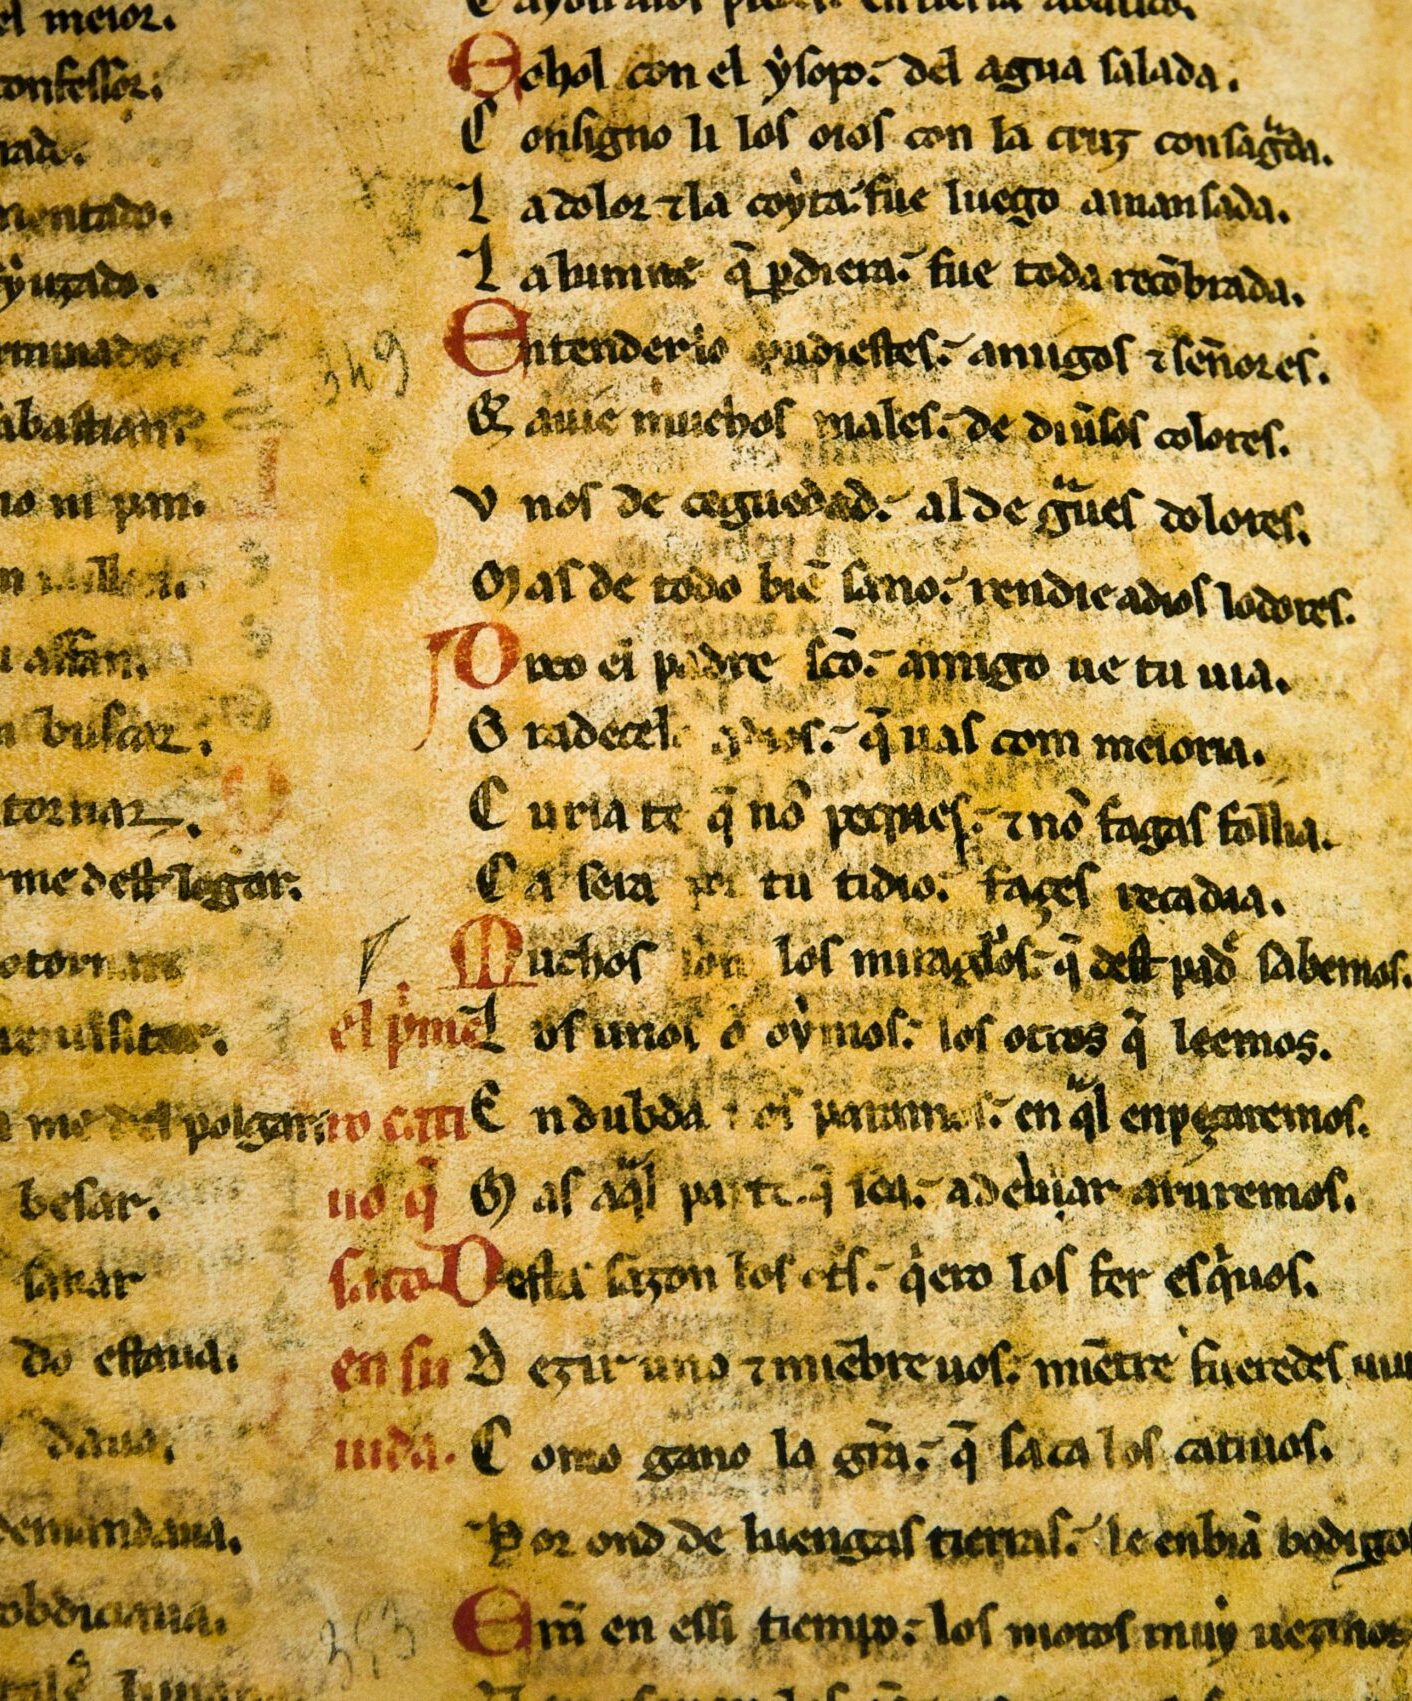 el meior.
confessor:
nad.
mentado.
yuzado.
rminado
abastian.
no ni pan.
affan.
buscar.
tornar.
me dest logar.
tornar
me del polgar
besar.
sanar
do estaua.
daua.
demandaua.
obdiciaua.
Echol con el ysopo: del agua salada.
Consigno li los oios con la cruz consagda.
La dolor ⁊ la coyta: fue luego amansada.
La lumne q̄ pdiera: fue toda recōbrada.
349
Entenderlo pudiestes: amigos ⁊ señores.
Q auie muchos males: de diũsos colores.
Vnos de ceguedad: al de gues dolores.
Mas de todo biē sano: rendie adios lodores.
Dixo el padre scō: amigo ue tu uia.
Gradecel adios: q̄ uas com meioria.
Curia te q̄ nō peques: ⁊ nō fagas follia.
Ca sera por tu tidio: façes recadia.
Muchos son los miraglos: q̄ dest padē sabemos.
Los unos ō oymos: los otros q̄ leemos.
En dubda nos paramos: en ql enpeçaremos.
Mas aql parte q̄ sea: adebuar auremos.
el pme
ro catti
uo q̄
saco
en su
uida.
Desta sazon los otrs: qero los fer esquos.
Dezir uno ⁊ miēbre uos: miētre fueredes uiu
Como gano la grā: q̄ saca los catiuos.
Por ond de luengas tierras: le enbiā bodigos
353
Erā en essi tiempo: los moros muy uezinos